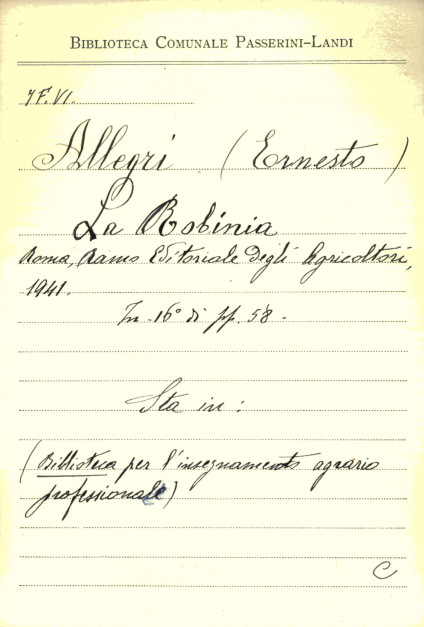 BIBLIOTECA COMUNALE PASSERINI-LANDI
7F.VI.
Allegri (Ernesto)
La Robinia
Roma, Ramo Editoriale degli Agricoltori,
1941.
In-16° di pp. 58.
Sta in:
(Biblioteca per l'insegnamento agrario
professionale)
C